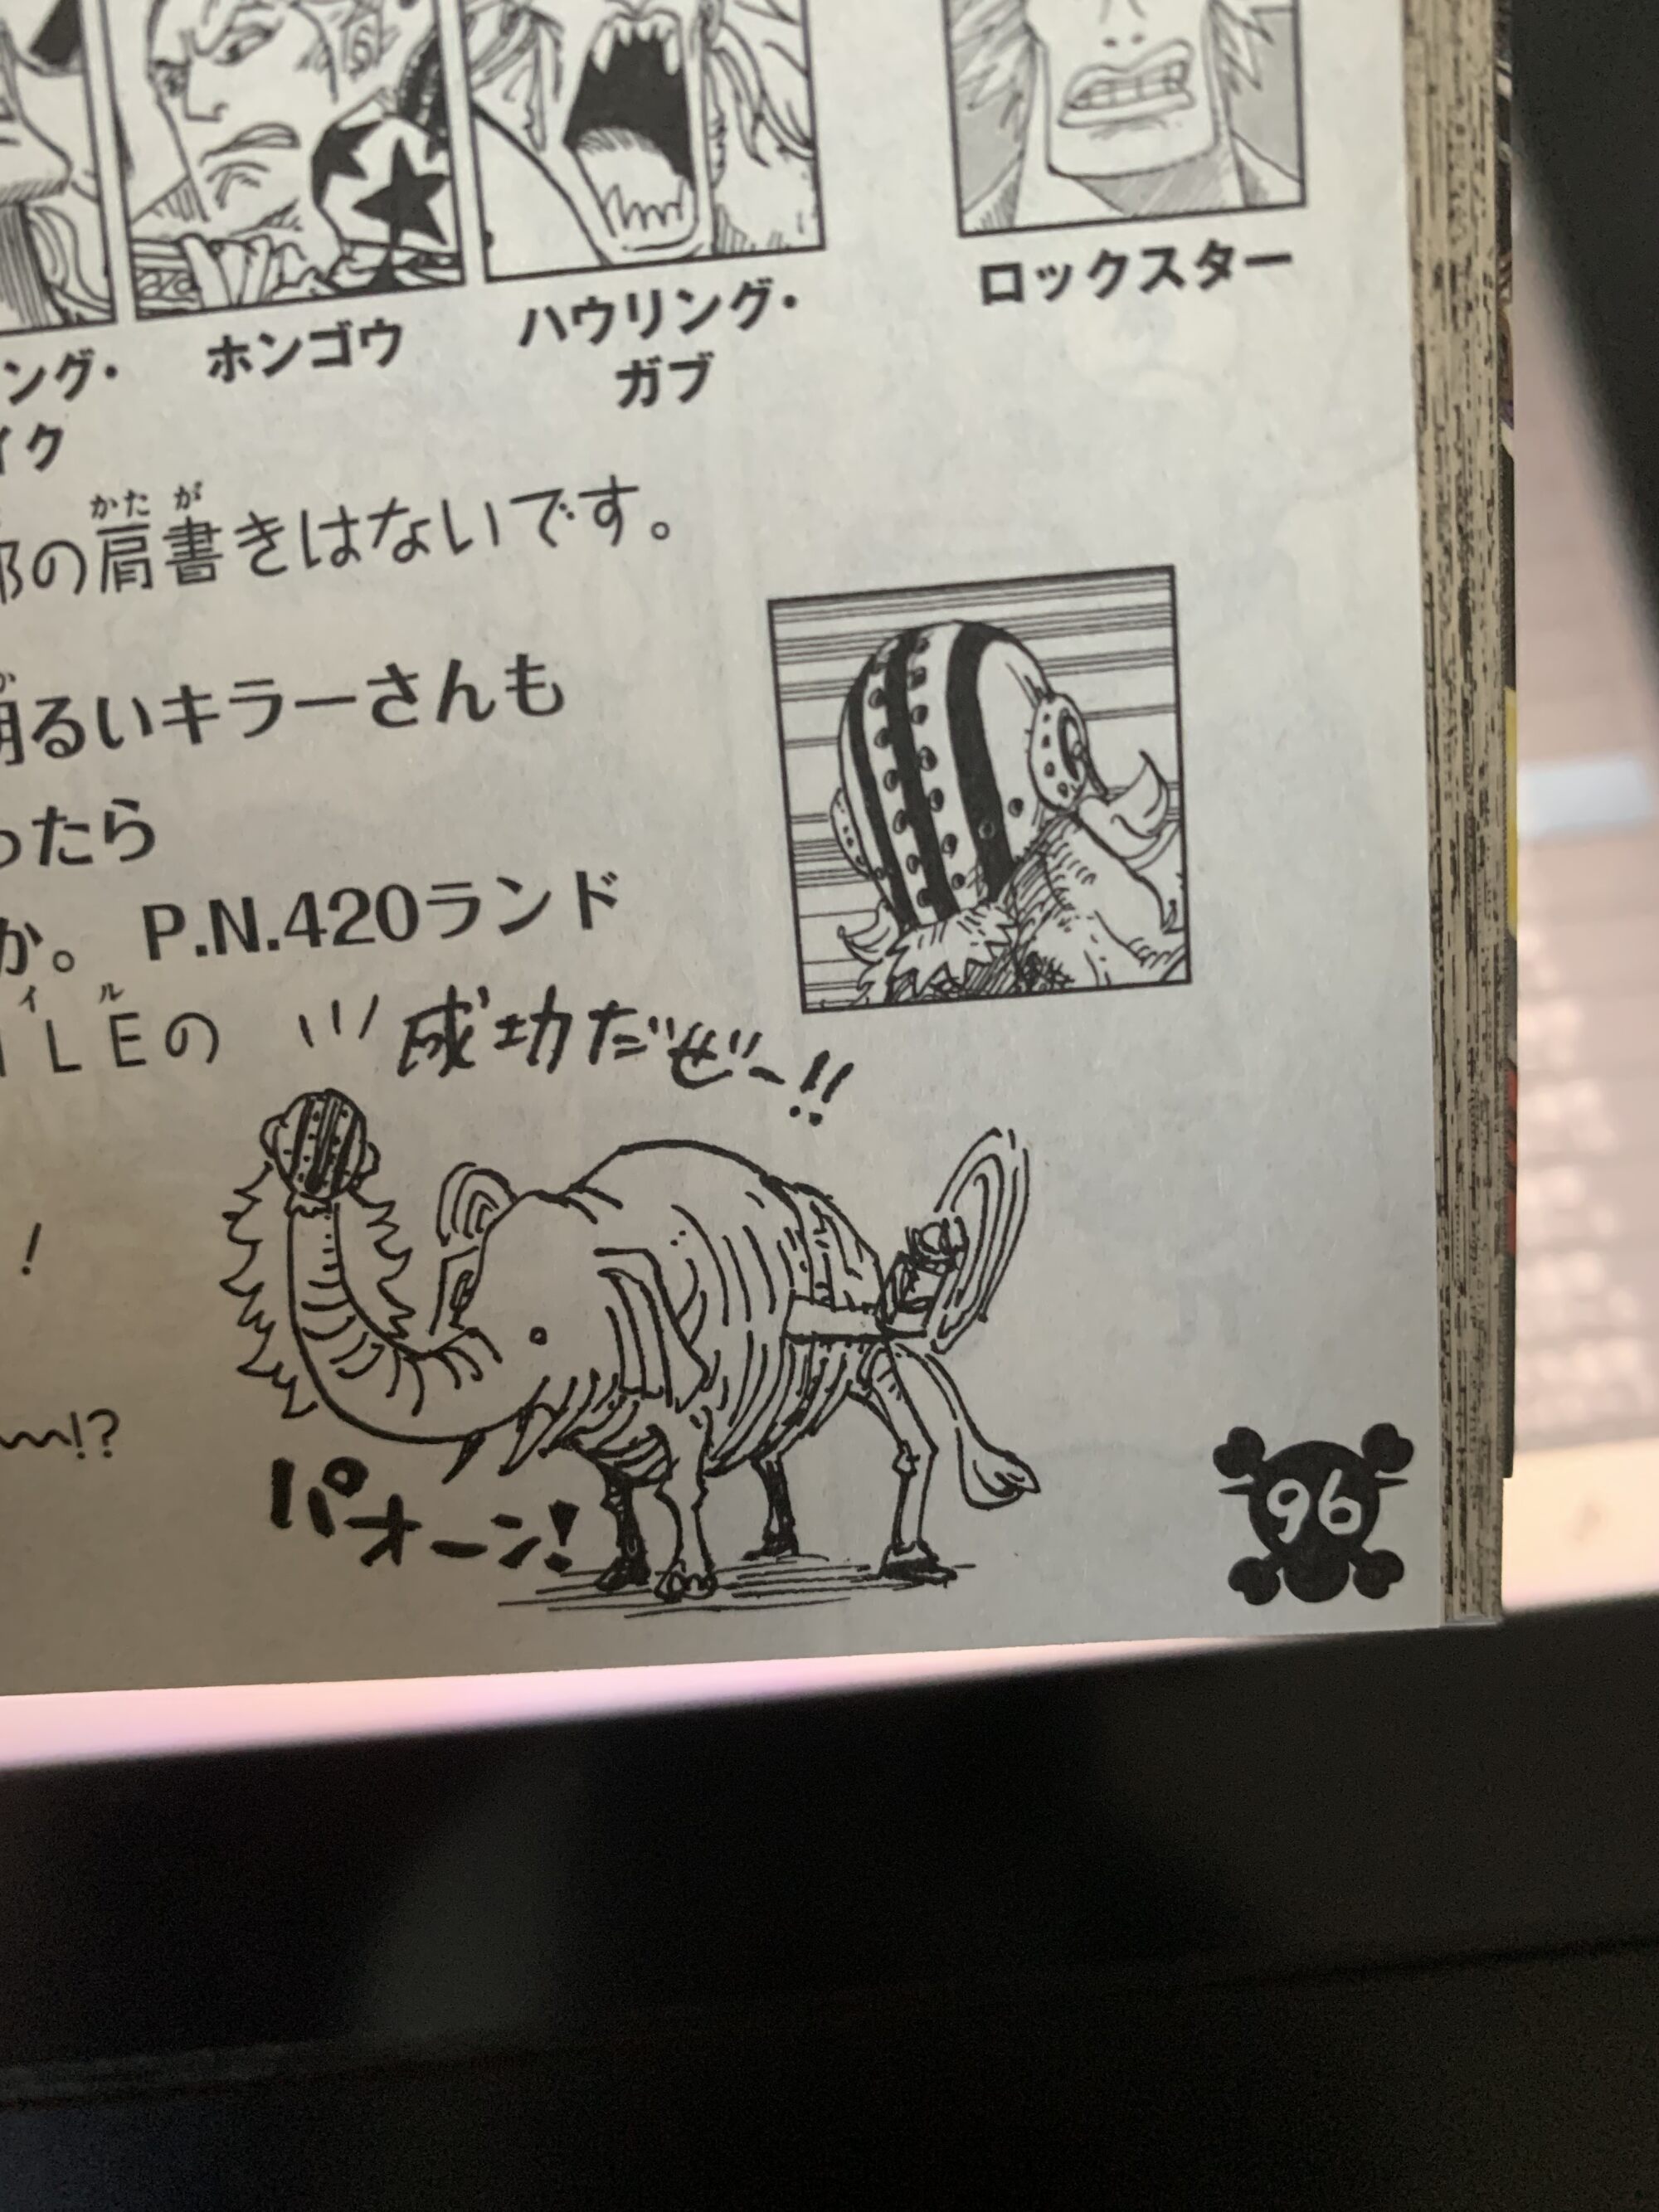 ホンゴウ
ハウリング・
ガブ
ロックスター
ング・
イク
の肩書きはないです。
かたが
るいキラーさんも
ったら
か。 P.N.420ランド
イル
ILEの
成功だぜー!!
!
!?
パオーン!
96